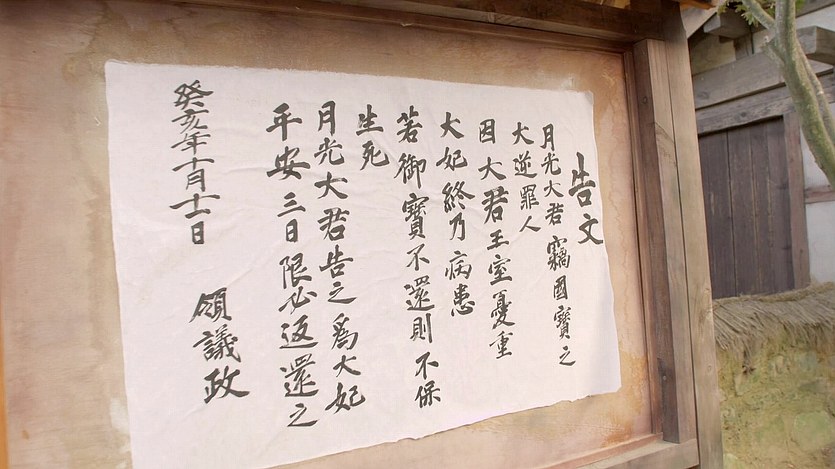 告文
月光大君竊國寶之
大逆罪人
因大君王室憂重
大妃終乃病患
若御寶不還則不保
生死
月光大君告之爲大妃
平安三日限必返還之
癸亥年十月十一日
領議政